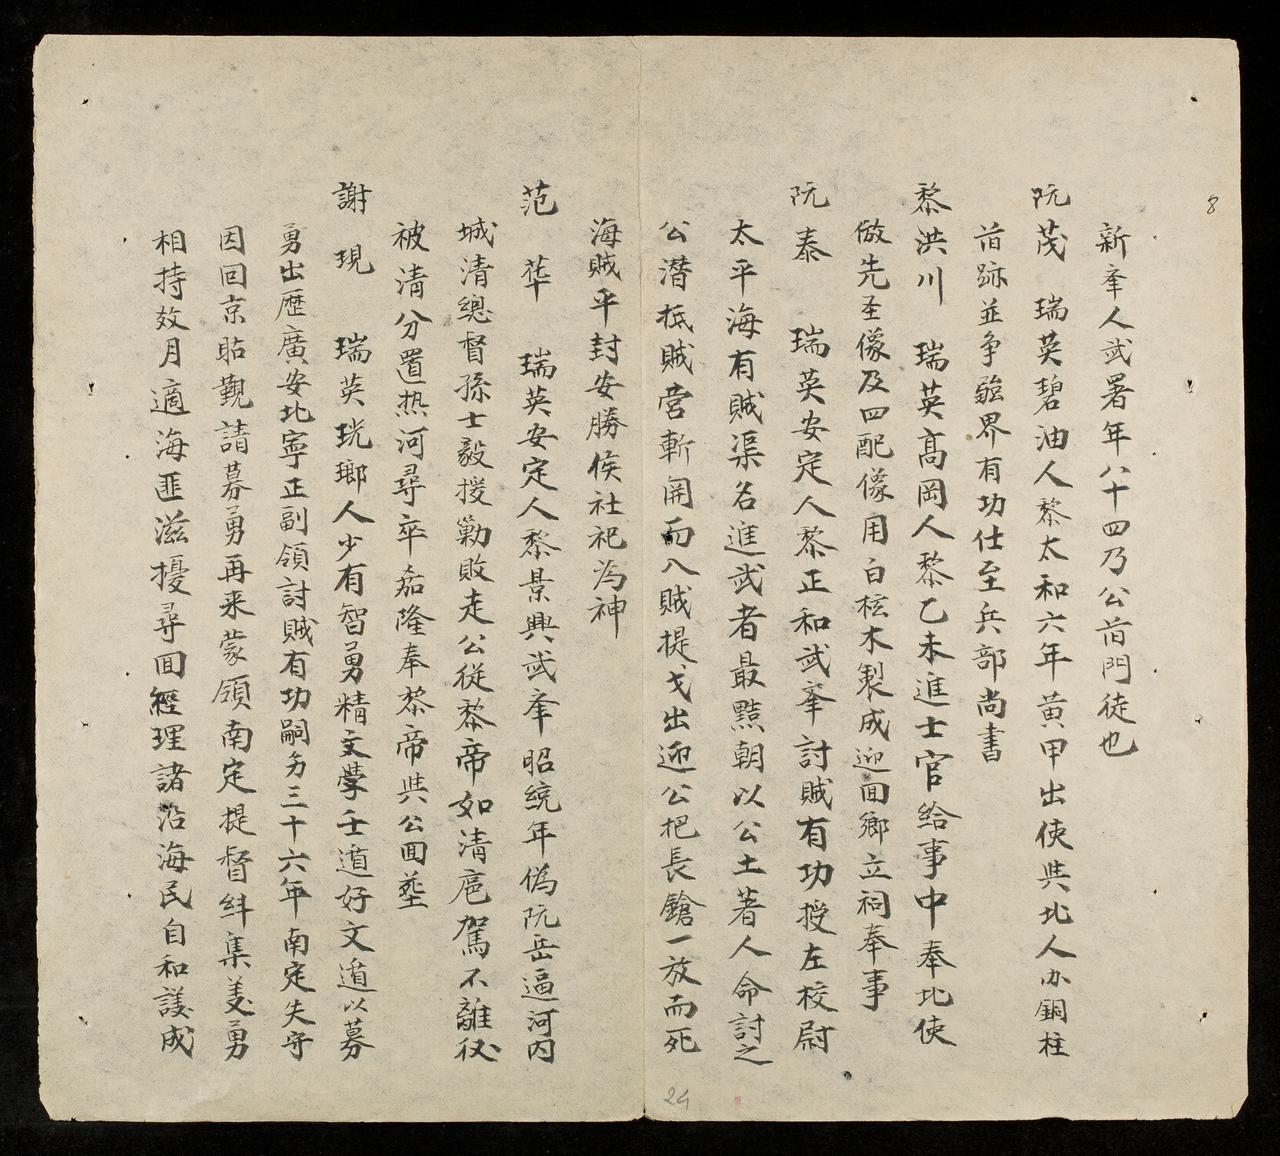 8
新峯人武署年八十四乃公前門徒也
阮茂 瑞英碧油人黎太和六年黄甲出使與北人办銅柱
前跡並争臨界有功仕至兵部尚書
黎洪川 瑞英高岡人黎乙未進士官給事中奉北使
倣先圣像及四配像用白桩木製成迎回鄉立祠奉事
阮泰 瑞英安定人黎正和武峯討賊有功授左校尉
太平海有賊渠名進武者最黠朝以公土著人命討之
公潜抵賊营斬開而入賊提戈出迎公把長鎗一放而死
海賊平封安勝侯社祀為神
范華 瑞英安定人黎景興武峯昭統年偽阮岳逼河内
城清總督孫士毅援勦敗走公従黎帝如清扈駕不離後
被清分置热河尋卒嘉隆奉黎帝與公回塟
謝現 瑞英珖瑯人少有智勇精文學壬遁好文遁以募
勇出歷廣安北寧正副領討賊有功嗣为三十六年南定失守
因回京貼覲請募勇再来蒙領南定提督糾集羙勇
相持效月適海匪滋擾尋回經理諸沿海民自和護成
24